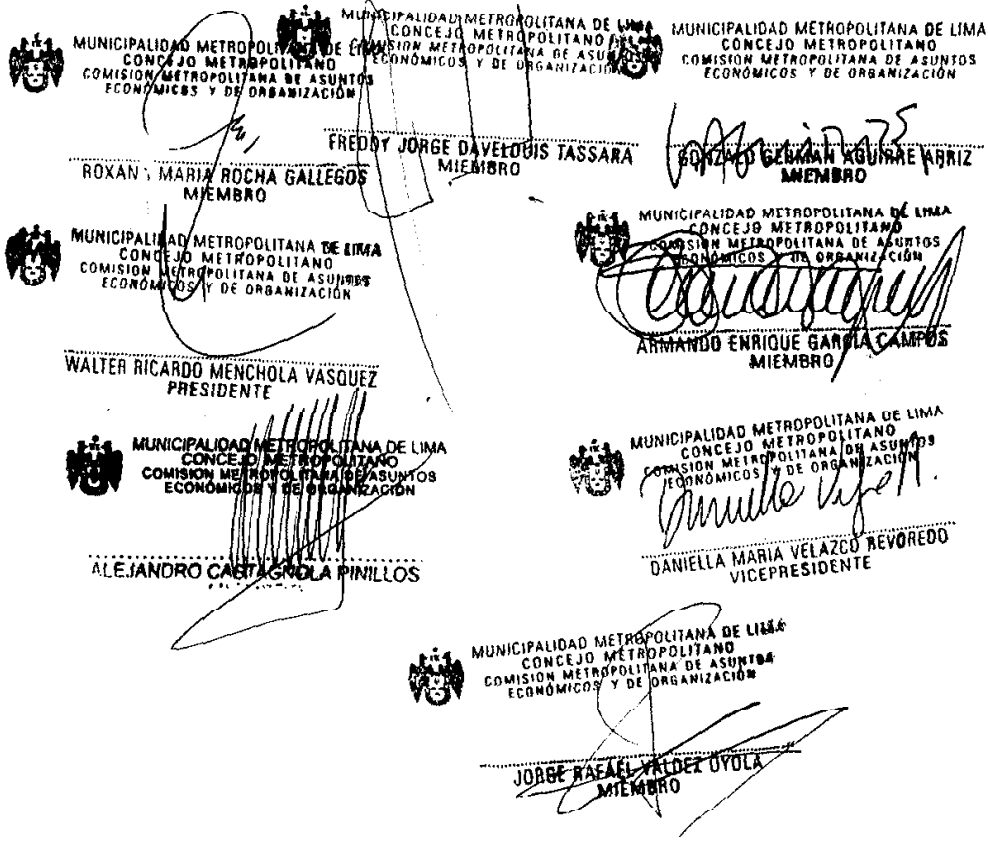 MUNICIPALIDAD METROPOLITANA DE LIMA
CONCEJO METROPOLITANO
COMISION METROPOLITANA DE ASUNTOS
ECONÓMICOS Y DE ORGANIZACIÓN
ROXANA MARIA ROCHA GALLEGOS
MIEMBRO
MUNICIPALIDAD METROPOLITANA DE LIMA
CONCEJO METROPOLITANO
COMISION METROPOLITANA DE ASUNTOS
ECONÓMICOS Y DE ORGANIZACIÓN
FREDDY JORGE DAVELOUIS TASSARA
MIEMBRO
MUNICIPALIDAD METROPOLITANA DE LIMA
CONCEJO METROPOLITANO
COMISION METROPOLITANA DE ASUNTOS
ECONÓMICOS Y DE ORGANIZACIÓN
GONZALO GERMAN AGUIRRE ARRIZ
MIEMBRO
MUNICIPALIDAD METROPOLITANA DE LIMA
CONCEJO METROPOLITANO
COMISION METROPOLITANA DE ASUNTOS
ECONÓMICOS Y DE ORGANIZACIÓN
WALTER RICARDO MENCHOLA VASQUEZ
PRESIDENTE
MUNICIPALIDAD METROPOLITANA DE LIMA
CONCEJO METROPOLITANO
COMISION METROPOLITANA DE ASUNTOS
ECONÓMICOS Y DE ORGANIZACIÓN
ARMANDO ENRIQUE GARCIA CAMPOS
MIEMBRO
MUNICIPALIDAD METROPOLITANA DE LIMA
CONCEJO METROPOLITANO
COMISION METROPOLITANA DE ASUNTOS
ECONÓMICOS Y DE ORGANIZACIÓN
ALEJANDRO CASTAGNOLA PINILLOS
MUNICIPALIDAD METROPOLITANA DE LIMA
CONCEJO METROPOLITANO
COMISION METROPOLITANA DE ASUNTOS
ECONÓMICOS Y DE ORGANIZACIÓN
DANIELLA MARIA VELAZCO REVOREDO
VICEPRESIDENTE
MUNICIPALIDAD METROPOLITANA DE LIMA
CONCEJO METROPOLITANO
COMISION METROPOLITANA DE ASUNTOS
ECONÓMICOS Y DE ORGANIZACIÓN
JORGE RAFAEL VALDEZ OYOLA
MIEMBRO